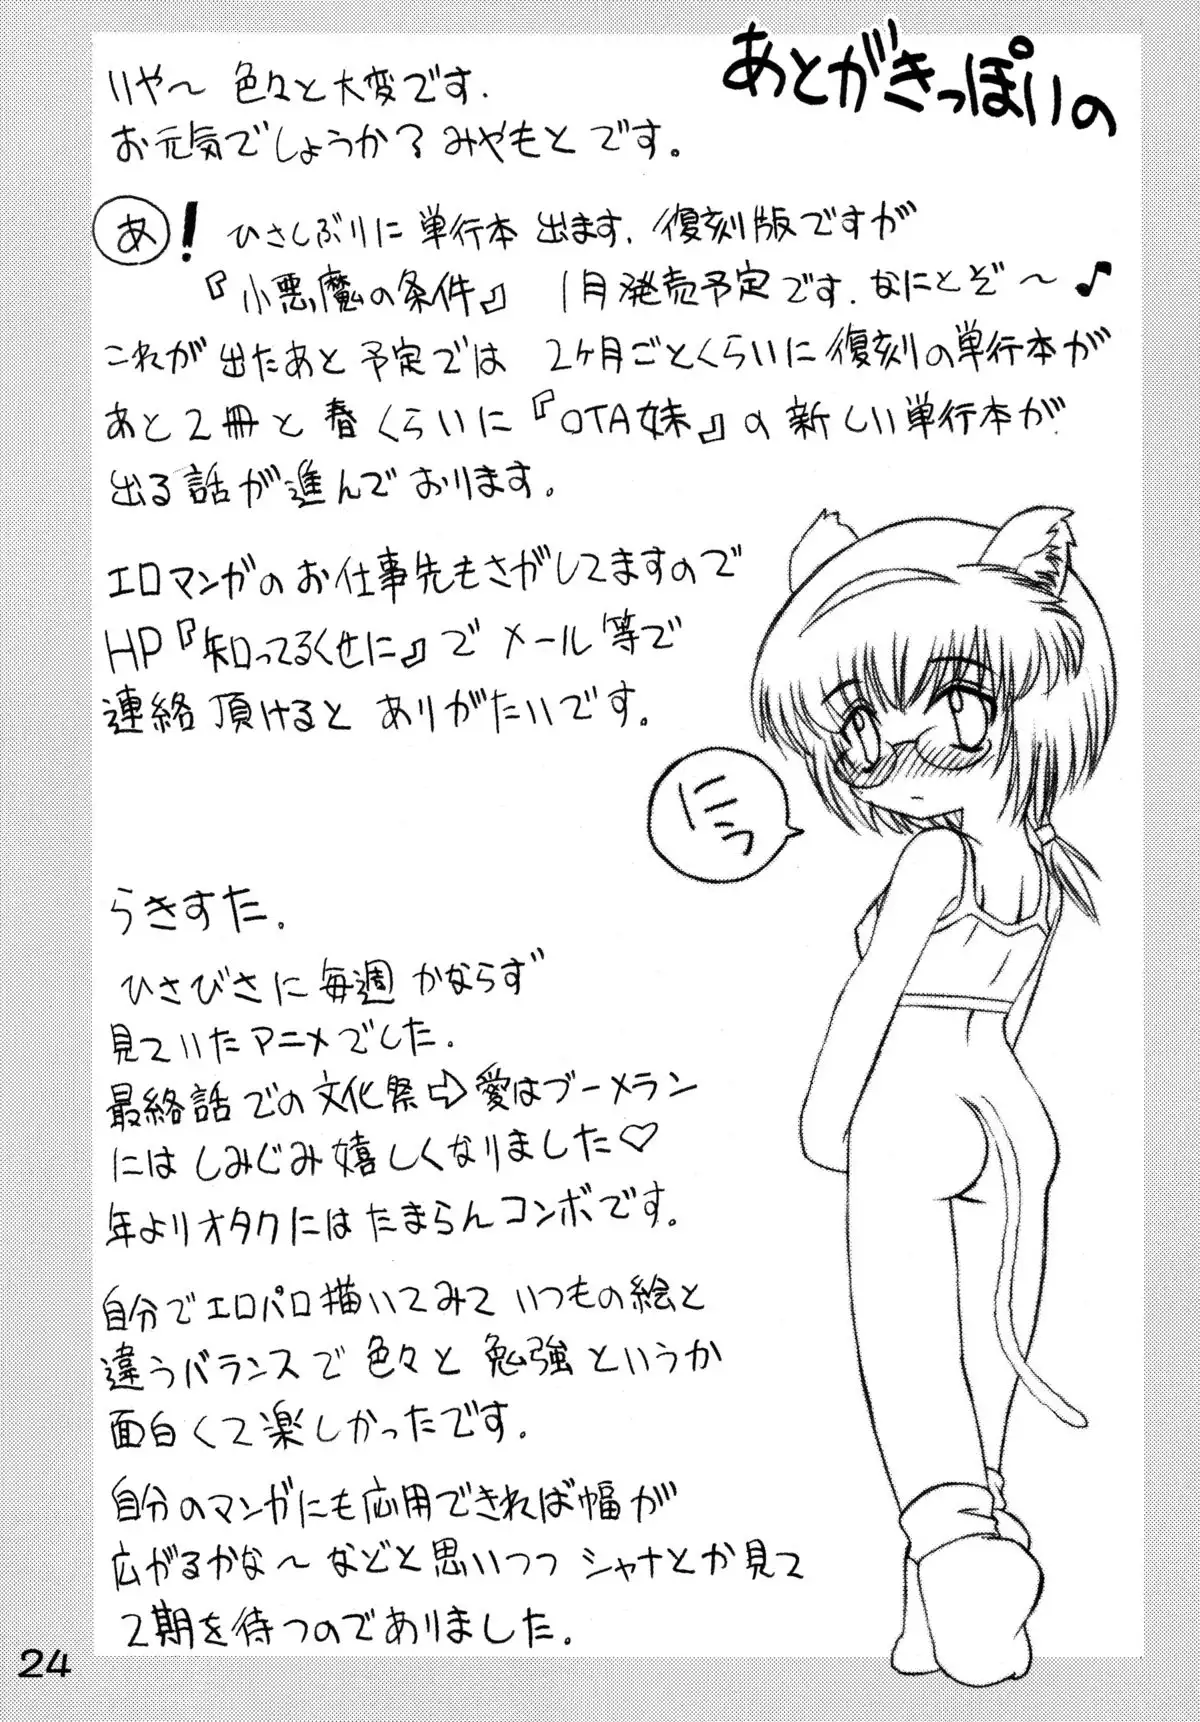 あとがきっぽいの
いや〜 色々と大変です.
お元気でしょうか? みやもと です。
あ! ひさしぶりに 単行本 出ます. 復刻版ですが
『小悪魔の条件』 1月発売予定です. なにとぞ〜♪
これが 出たあと 予定では 2ケ月ごとくらいに 復刻の単行本が
あと2冊と 春くらいに『OTA妹』の 新しい単行本が
出る話が進んでおります。
エロマンガの お仕事先もさがしてますので
HP『知ってるくせに』で メール等で
連絡 頂けると ありがたいです。
にぅ
らきすた.
ひさびさに 毎週 かならず
見ていたアニメでした.
最終話での文化祭⇨愛はブーメラン
には しみじみ嬉しくなりました♡
年よりオタクには たまらんコンボです.
自分でエロパロ描いてみて いつもの絵と
違うバランスで 色々と 勉強というか
面白くて楽しかったです.
自分のマンガにも応用できれば幅が
広がるかな〜 などと思いつつ シャナとか見て
2期を待つのでありました.
24